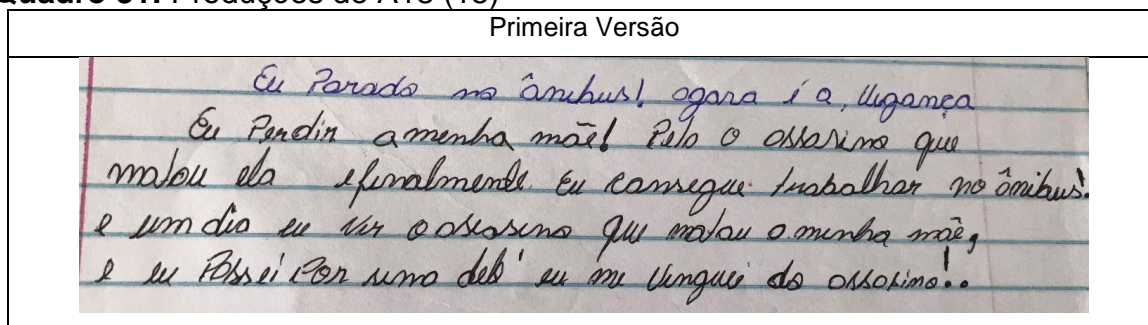 Primeira Versão
Eu Parado no ânibus! agora i a Vigança
Eu Perdin a menha mãe! Pelo o assasino que
matou ela e finalmente eu consegue trabalhar no ônibus!
e um dia eu vir o assasino que matou a minha mãe,
e eu Passei Por sima dele' eu me Vinguei do assasino!..